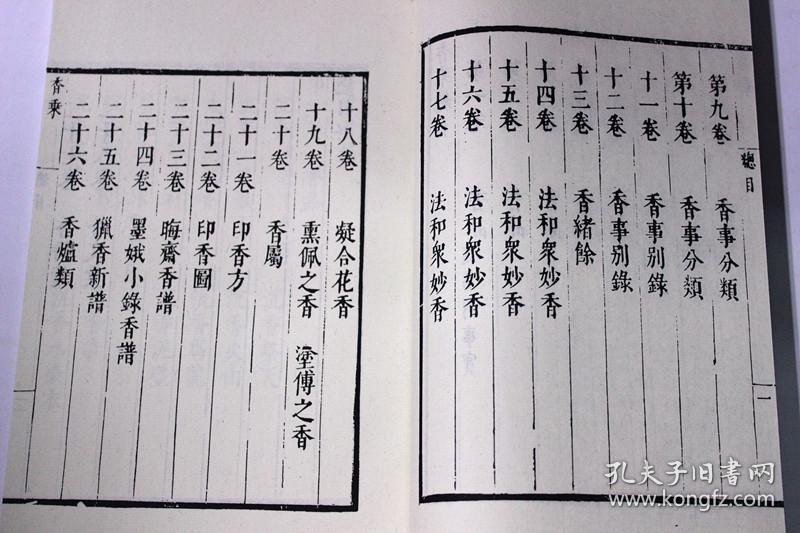 總目
一
第九卷 香事分類
第十卷 香事分類
十一卷 香事別錄
十二卷 香事別錄
十三卷 香緒餘
十四卷 法和衆妙香
十五卷 法和衆妙香
十六卷 法和衆妙香
十七卷 法和衆妙香
十八卷 凝合花香
十九卷 熏佩之香 塗傅之香
二十卷 香屬
二十一卷 印香方
二十二卷 印香圖
二十三卷 晦齋香譜
二十四卷 墨娥小錄香譜
二十五卷 獵香新譜
二十六卷 香爐類
香乘
孔夫子旧書网
www.kongfz.com